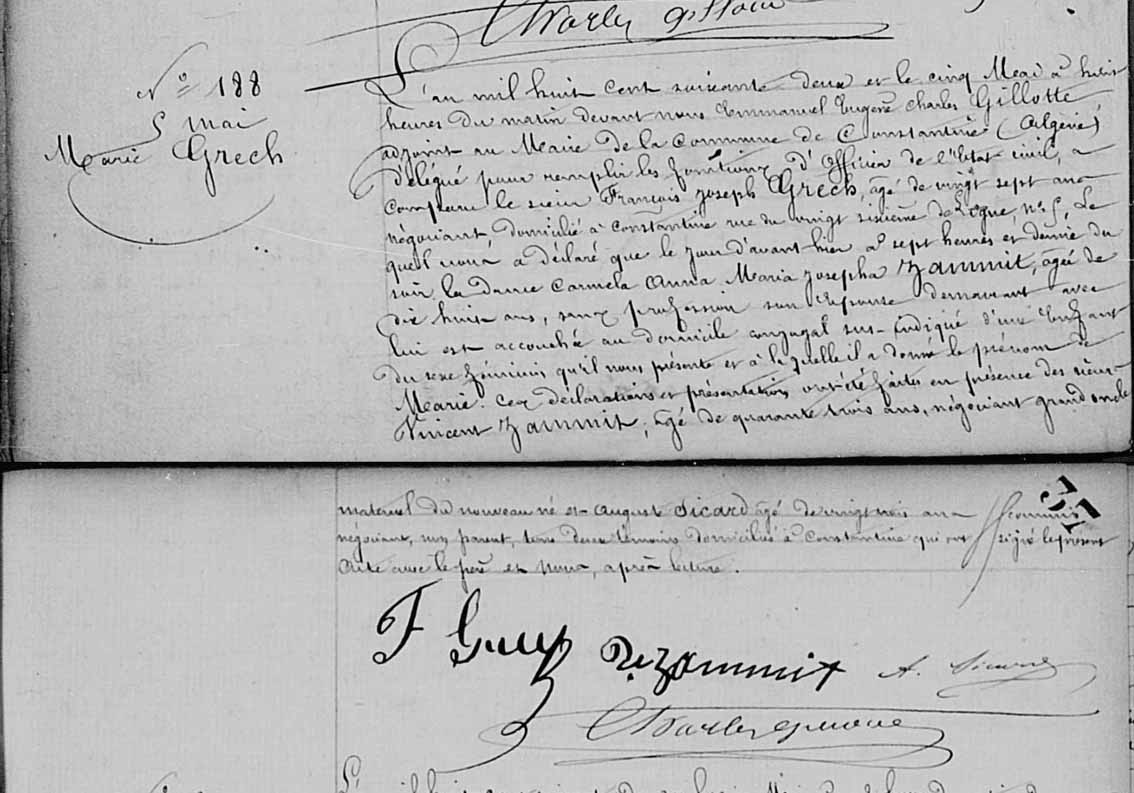 Charles Gillotte
N° 188
5 mai
Marie Grech
L'an mil huit cent soixante deux et le cinq Mai à huit
heures du matin devant nous Emmanuel Eugène Charles Gillotte
adjoint au Maire de la Commune de Constantine (Algérie)
délégué pour remplir les fonctions d'Officier de l'Etat civil, a
comparu le sieur François Joseph Grech, âgé de vingt sept ans
négociant, domicilié à Constantine rue du vingt sixième de Ligne, n° 5, Le
quel nous a déclaré que le jour d'avant hier à sept heures et demie du
soir la Dame Carmela Anna Maria Josepha Zammit, âgée de
dix huit ans, sans profession son Epouse demeurant avec
lui est accouchée au domicile conjugal sus-indiqué d'un Enfant
du sexe féminin qu'il nous présente et à laquelle il a donné le prénom de
Marie. Ces déclarations et présentations ont été faites en présence des sieurs
Vincent Zammit, âgé de quarante trois ans, négociant grand oncle
maternel du nouveau né et August Sicard âgé de vingt trois ans
négociant, non parent, tous deux témoins domiciliés à Constantine qui ont signé le présent
Acte avec le père et nous, après lecture.
F Grech
Zammit
A. Sicard
Charles Gillotte